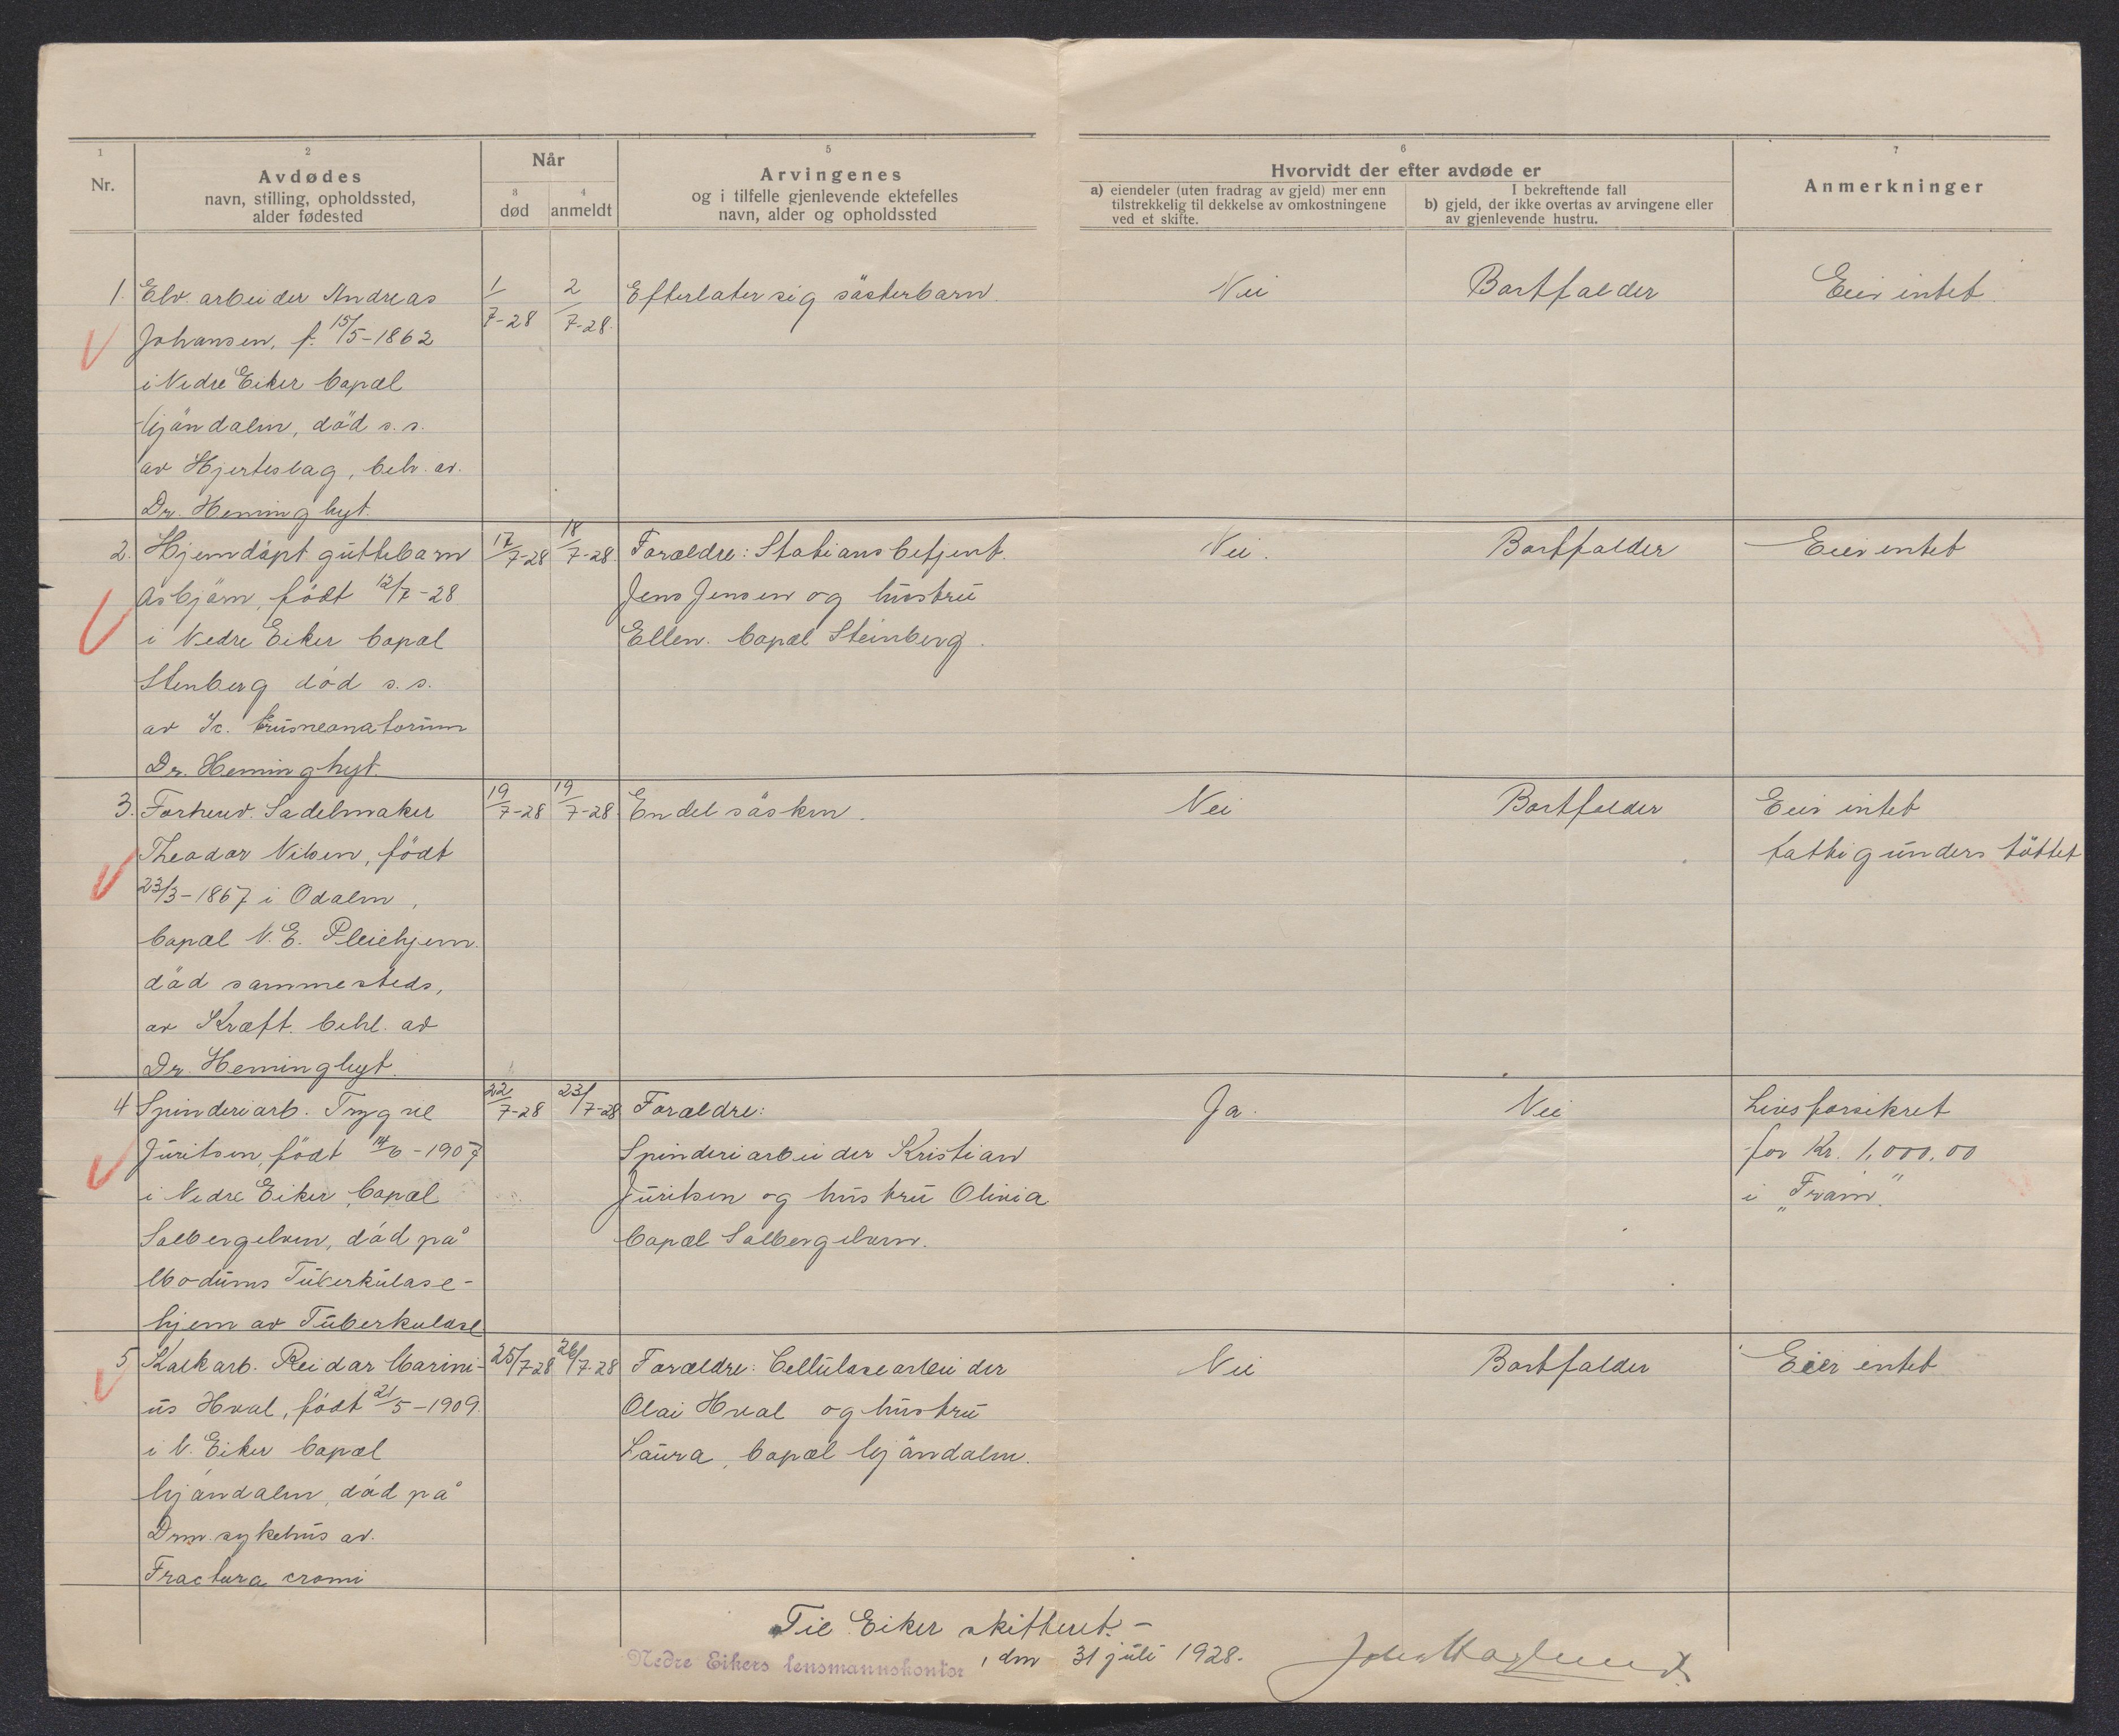 1
Nr.
2
Avdødes
navn, stilling, opholdssted,
alder fødested
Når
3
død
4
anmeldt
5
Arvingenes
og i tilfelle gjenlevende ektefelles
navn, alder og opholdssted
6
Hvorvidt der efter avdøde er
a) eiendeler (uten fradrag av gjeld) mer enn
tilstrekkelig til dekkelse av omkostningene
ved et skifte.
I bekreftende fall
b) gjeld, der ikke overtas av arvingene eller
av gjenlevende hustru.
7
Anmerkninger
1. Elv. arbeider Andreas
Johansen, f. 15/5-1862
i Nedre Eiker bopæl
Mjöndalen, död s.s.
av Hjerteslag, beh. av.
Dr. Heminghyt.
1/7-28
2/7-28.
Efterlater sig søsterbarn.
Nei
Bortfalder
Eier intet.
2. Hjemdöpt guttebarn
Asbjörn, födt 12/7-28
i Nedre Eiker bopæl
Stenberg död s.s.
av Ic. terus neonatorum
Dr. Heminghyt.
17/7-28
18/7-28.
Forældre: Stationsbetjent.
Jens Jensen og hustru
Ellen. bopæl Steinberg.
Nei.
Bortfalder
Eier intet
3. Forhenv. Sadelmaker
Theodor Nilsen, födt
23/3-1867 i Odalen,
bopæl N.E. Pleiehjem.
död sammesteds,
av Kræft. behl. av
Dr. Heminghyt.
19/7-28
19/7-28
En del søsken.
Nei
Bortfalder
Eier intet
fattigunderstöttet
4 Spinderiarb. Trygve
Juritsen, födt 14/6-1907
i Nedre Eiker, bopæl
Solbergelven, död på
Modums Tuberkulose-
hjem av Tuberkulose
22/7-28
23/7-28
Forældre:
Spinderiarbeider Kristian
Juritsen og hustru Olivia
bopæl Solbergelven.
Ja.
Nei
Livsforsikret
for Kr. 1,000,00
i "Fram".
5 Kalkarb. Reidar Marini-
us Hval, födt 21/5-1909.
i N. Eiker bopæl
Mjöndalen, död på
Drm. sykehus av.
Fractura cranii
25/7-28
26/7-28
Forældre: Cellulosearbeider
Olai Hval og hustru
Laura, bopæl Mjöndalen.
Nei
Bortfalder
Eier intet
Til Eiker skifteret.-
Nedre Eikers lensmannskontor, den 31 juli 1928.